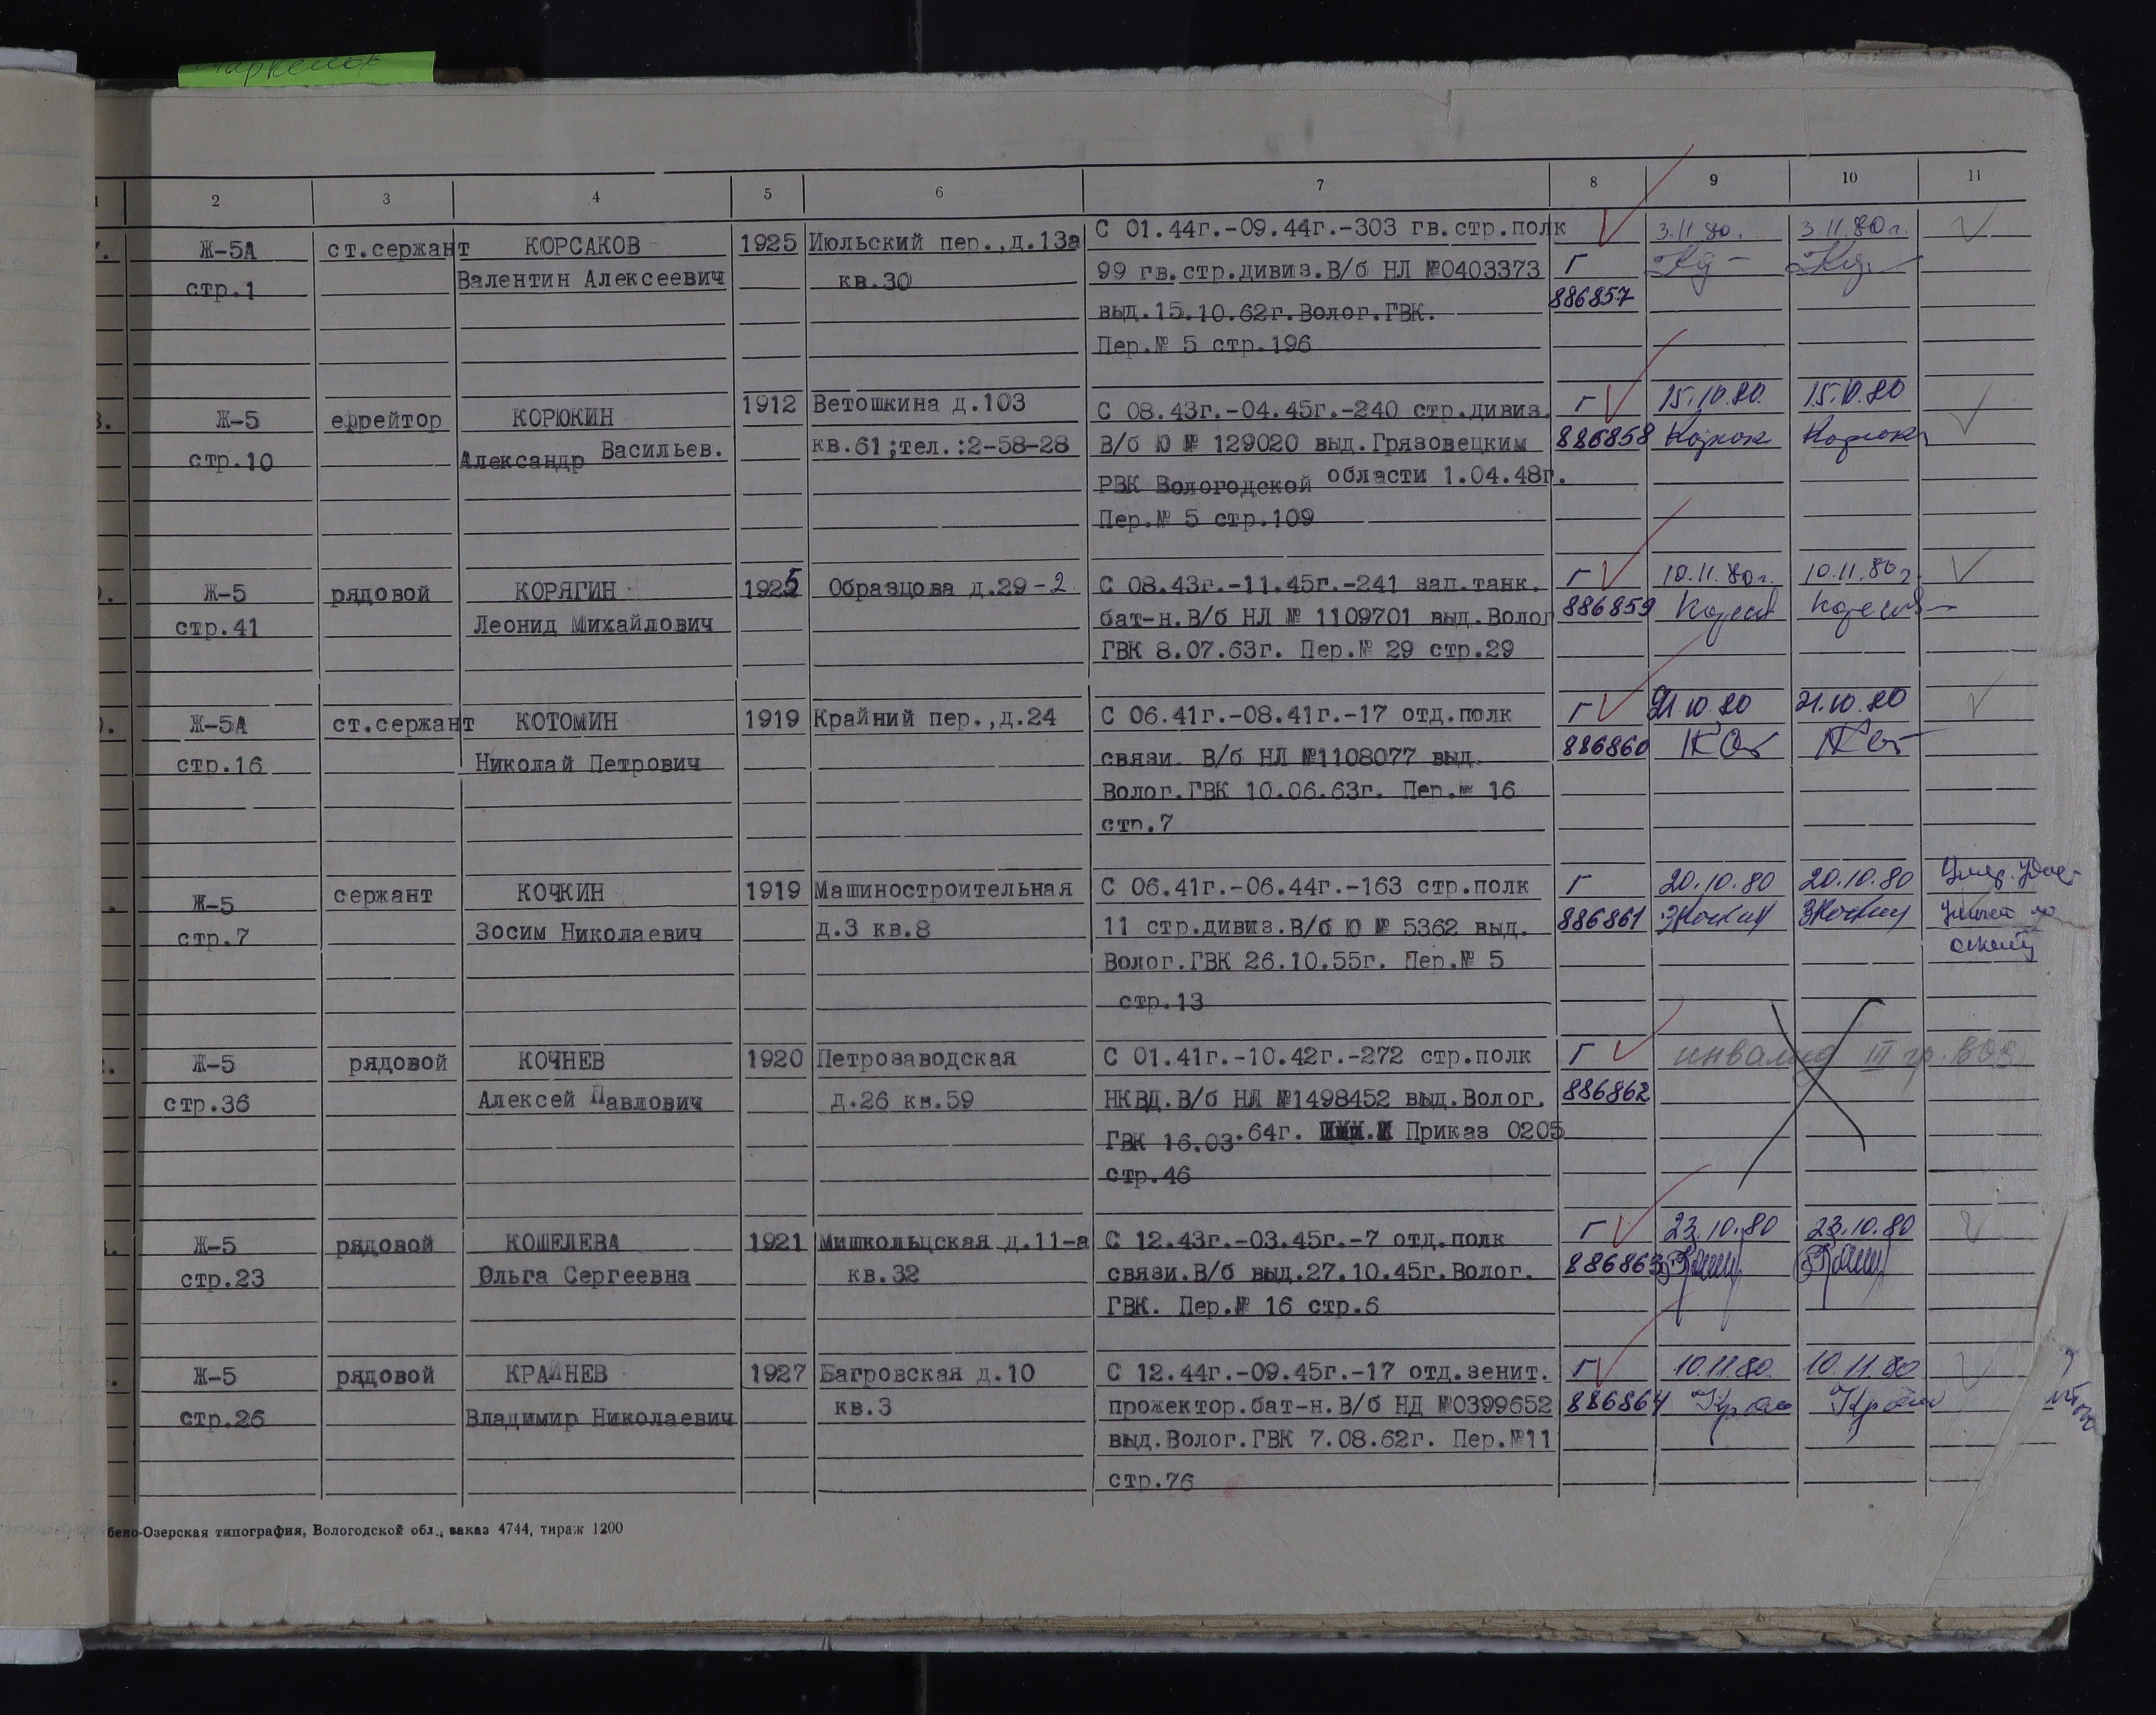 1 2 3 4 5 6 7 8 9 10 11
Ж-5А ст.сержант КОРСАКОВ 1925 Июльский пер.,д.13а С 01.44г.-09.44г.-303 гв.стр.полк 3.11.80. 3.11.80г.
стр.1 Валентин Алексеевич кв.30 99 гв.стр.дивиз.В/б НЛ №0403373 Г
выд.15.10.62г.Волог.ГВК. 886857
Пер.№ 5 стр.196
Ж-5 ефрейтор КОРЮКИН 1912 Ветошкина д.103 С 08.43г.-04.45г.-240 стр.дивиз. Г 15.10.80. 15.10.80
стр.10 Александр Васильев. кв.61;тел.:2-58-28 В/б Ю № 129020 выд.Грязовецким 886858 Корюк Корюк
РВК Вологодской области 1.04.48г.
Пер.№ 5 стр.109
Ж-5 рядовой КОРЯГИН 1925 Образцова д.29-2 С 08.43г.-11.45г.-241 зап.танк. Г 10.11.80г. 10.11.80г.
стр.41 Леонид Михайлович бат-н.В/б НЛ № 1109701 выд.Волог 886859
ГВК 8.07.63г. Пер.№ 29 стр.29
Ж-5А ст.сержант КОТОМИН 1919 Крайний пер.,д.24 С 06.41г.-08.41г.-17 отд.полк Г 21.10.80 21.10.80
стр.16 Николай Петрович связи. В/б НЛ №1108077 выд. 886860 КОт КОт
Волог.ГВК 10.06.63г. Пер.№ 16
стр.7
Ж-5 сержант КОЧКИН 1919 Машиностроительная С 06.41г.-06.44г.-163 стр.полк Г 20.10.80 20.10.80
стр.7 Зосим Николаевич д.3 кв.8 11 стр.дивиз.В/б Ю № 5362 выд. 886861 ЗКочкин ЗКочкин
Волог.ГВК 26.10.55г. Пер.№ 5
стр.13
Ж-5 рядовой КОЧНЕВ 1920 Петрозаводская С 01.41г.-10.42г.-272 стр.полк Г инвалид III гр. ВОВ
стр.36 Алексей Павлович д.26 кв.59 НКВД.В/б НЛ №1498452 выд.Волог. 886862
ГВК 16.03.64г. Приказ 0205
стр.46
Ж-5 рядовой КОШЕЛЕВА 1921 Мишкольцская д.11-а С 12.43г.-03.45г.-7 отд.полк Г 23.10.80 23.10.80
стр.23 Ольга Сергеевна кв.32 связи.В/б выд.27.10.45г.Волог. 886863
ГВК. Пер.№ 16 стр.6
Ж-5 рядовой КРАЙНЕВ 1927 Багровская д.10 С 12.44г.-09.45г.-17 отд.зенит. Г 10.11.80. 10.11.80
стр.26 Владимир Николаевич кв.3 прожектор.бат-н.В/б НД №0399652 886864
выд.Волог.ГВК 7.08.62г. Пер.№11
стр.76
бено-Озерская типография, Вологодской обл., заказ 4744, тираж 1200